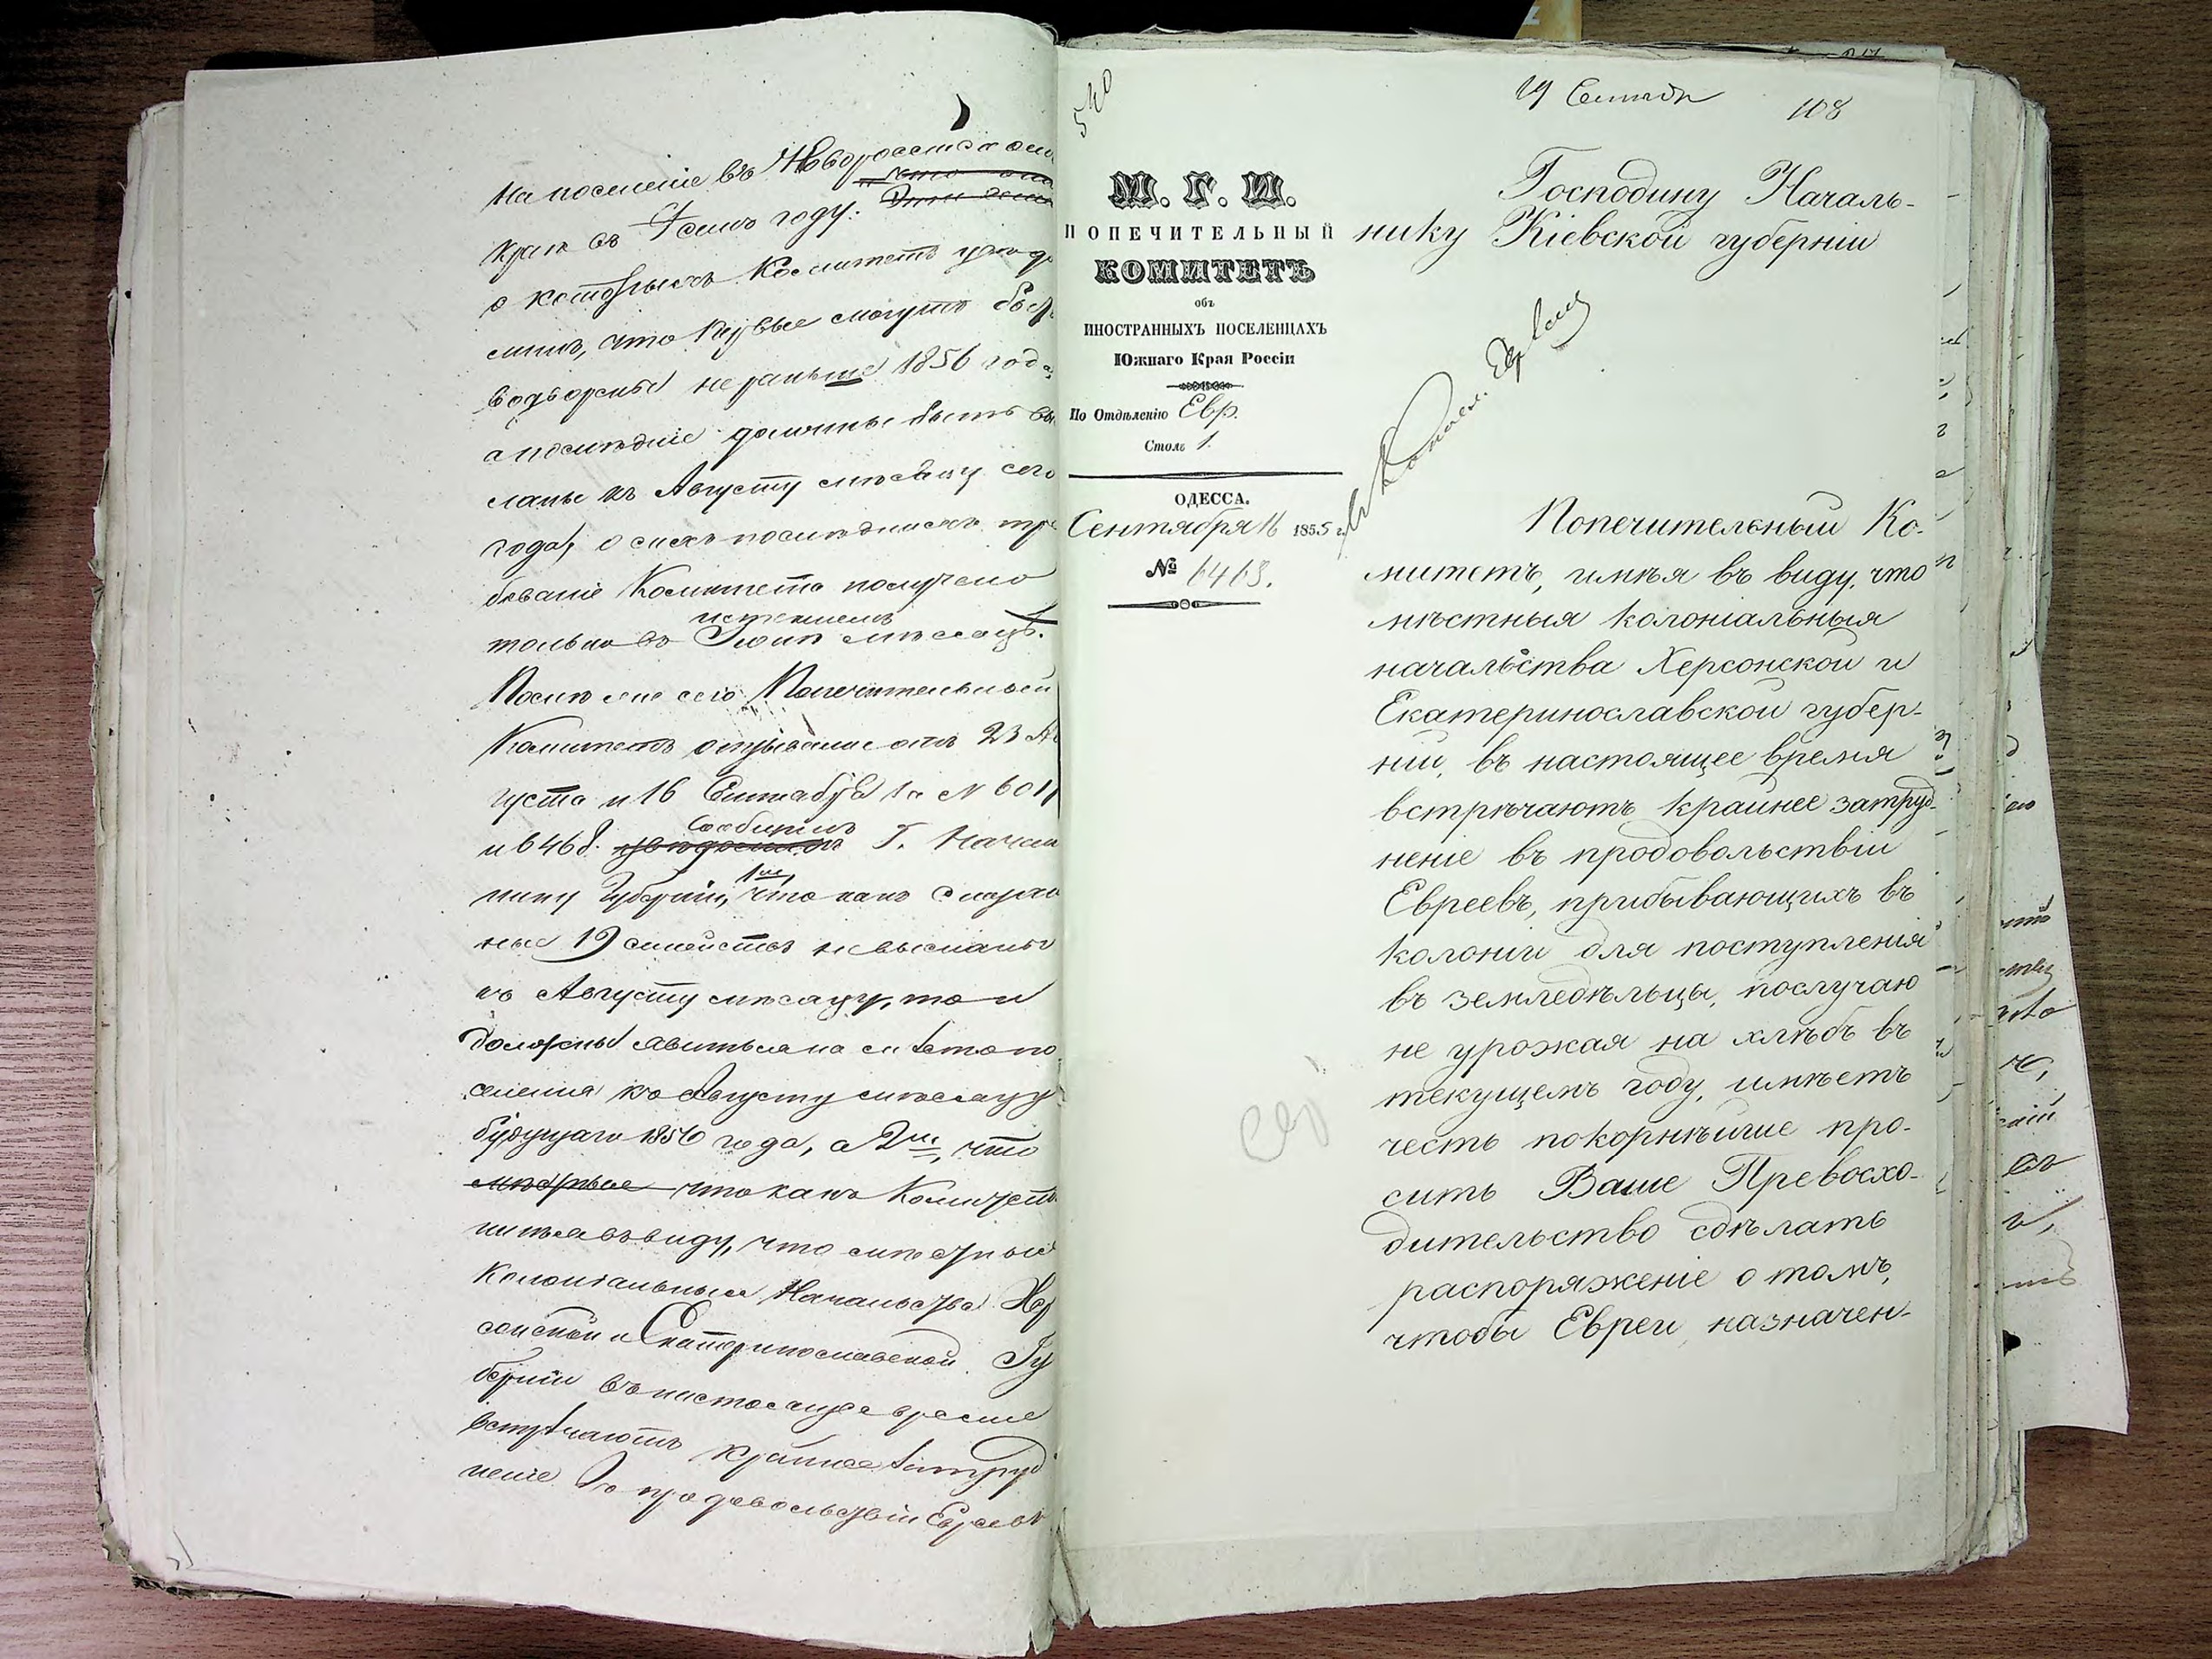 на поселеніе въ Новороссійском
краѣ въ семъ году:
о которыхъ Комитетъ увѣдо
милъ, что первые могутъ быть
водворены не раньше 1856 года,
а послѣдніе должны быть вы
сланы къ Августу мѣсяцу сего
года, о сихъ послѣднихъ тре
бованіе Комитета получено
только въ Іюнѣ мѣсяцѣ.
Послѣ сего Попечительный
Комитетъ отзывами отъ 23 Ав
густа и 16 Сентября за № 601
и 6468. сообщилъ Г. Началь
нику Губерніи, 1е, что какъ
ные 19 семействъ не высланы
къ Августу мѣсяцу, то и
должны явиться на мѣста по
селенія къ Августу мѣсяцу
будущаго 1856 года, а 2е, что
что какъ Комитетъ
имѣя въ виду, что мѣстныя
Колоніальныя Начальства Хер
сонской и Екатеринославской Гу
берніи въ настоящее время
встрѣчаютъ крайнее затруд
неніе въ продовольствіи Евреевъ
540
19 Сентября
108
М. Г. И.
ПОПЕЧИТЕЛЬНЫЙ
КОМИТЕТЪ
объ
ИНОСТРАННЫХЪ ПОСЕЛЕНЦАХЪ
Южнаго Края Россіи
По Отдѣленію Евр.
Столъ 1.
ОДЕССА.
Сентября 16 1855 г.
№ 6468.
Господину Началь-
нику Кіевской губерніи
Попечительный Ко-
митетъ, имѣя въ виду, что
мѣстныя колоніальныя
начальства Херсонской и
Екатеринославской губер-
ніи, въ настоящее время
встрѣчаютъ крайнее затруд-
неніе въ продовольствіи
Евреевъ, прибывающихъ въ
колоніи для поступленія
въ земледѣльцы, послучаю
не урожая на хлѣбъ въ
текущемъ году, имѣетъ
честь покорнѣйше про-
сить Ваше Превосхо-
дительство сдѣлать
распоряженіе о томъ,
чтобы Евреи, назначен-